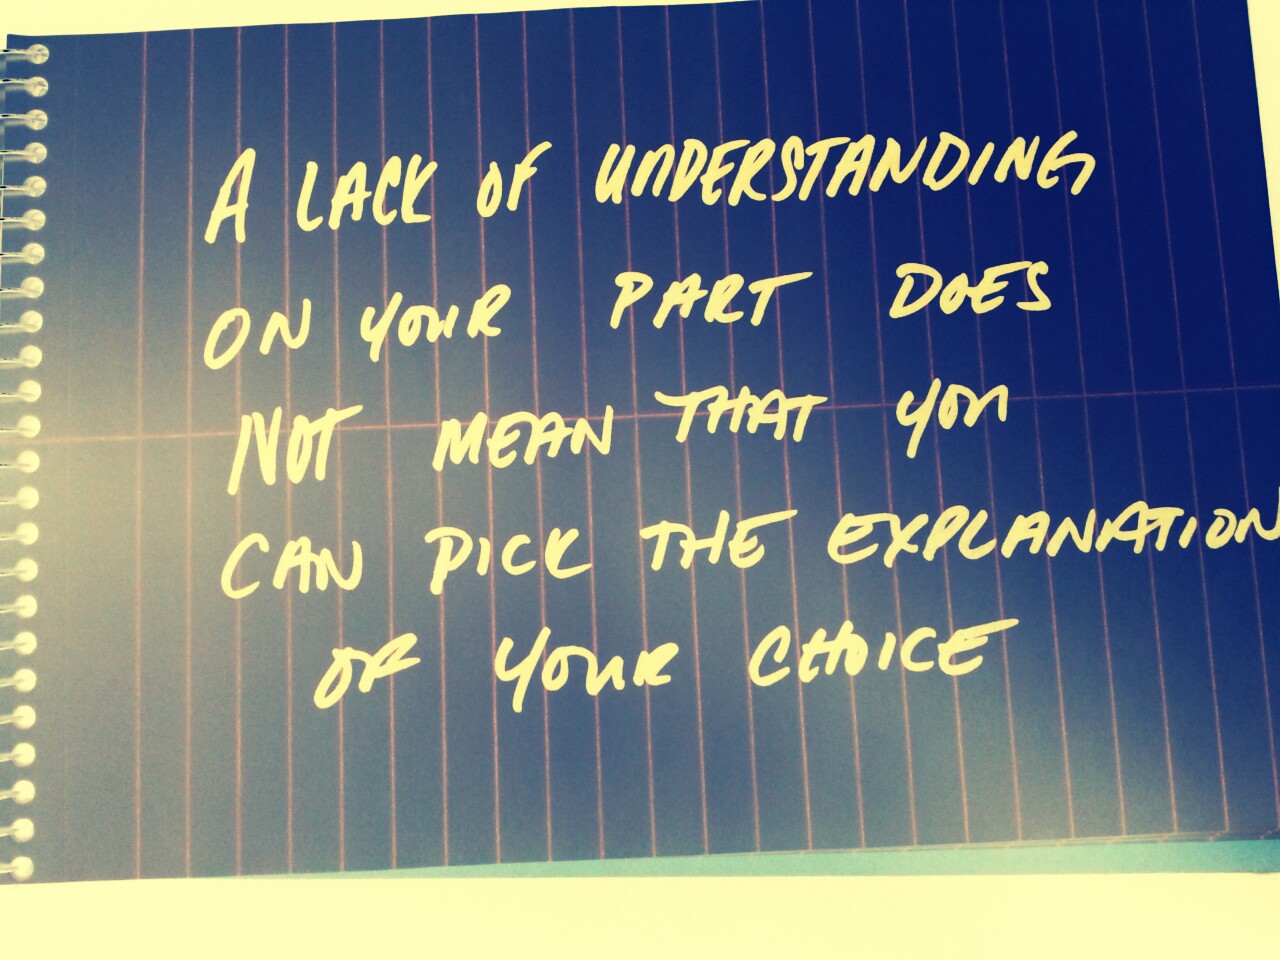 A LACK OF UNDERSTANDING
ON YOUR PART DOES
NOT MEAN THAT YOU
CAN PICK THE EXPLANATION
OF YOUR CHOICE